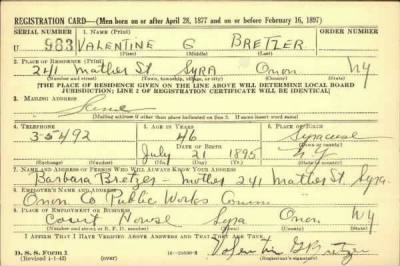 REGISTRATION CARD—(Men born on or after April 28, 1877 and on or before February 16, 1897)
SERIAL NUMBER 1. NAME (Print) ORDER NUMBER
U 983 VALENTINE G BRETZER
(First) (Middle) (Last)
2. PLACE OF RESIDENCE (Print)
241 Mather St SYRA Onon NY
(Number and street) (Town, township, village, or city) (County) (State)
[THE PLACE OF RESIDENCE GIVEN ON THE LINE ABOVE WILL DETERMINE LOCAL BOARD
JURISDICTION; LINE 2 OF REGISTRATION CERTIFICATE WILL BE IDENTICAL]
3. MAILING ADDRESS
Same
[Mailing address if other than place indicated on line 2. If same insert word same]
4. TELEPHONE 5. AGE IN YEARS 6. PLACE OF BIRTH
3-5492 46 Syracuse
DATE OF BIRTH (Town or county)
July 21 1895 NY
(Exchange) (Number) (Mo.) (Day) (Yr.) (State or country)
7. NAME AND ADDRESS OF PERSON WHO WILL ALWAYS KNOW YOUR ADDRESS
Barbara Bretzer - mother 241 Mather St. Syra.
8. EMPLOYER'S NAME AND ADDRESS
Onon Co Public Works Comm
9. PLACE OF EMPLOYMENT OR BUSINESS
Court House Syra Onon NY
(Number and street or R. F. D. number) (Town) (County) (State)
I AFFIRM THAT I HAVE VERIFIED ABOVE ANSWERS AND THAT THEY ARE TRUE.
D. S. S. Form 1 Valentine G Bretzer
(Revised 4-1-42) (over) (Registrant's signature)